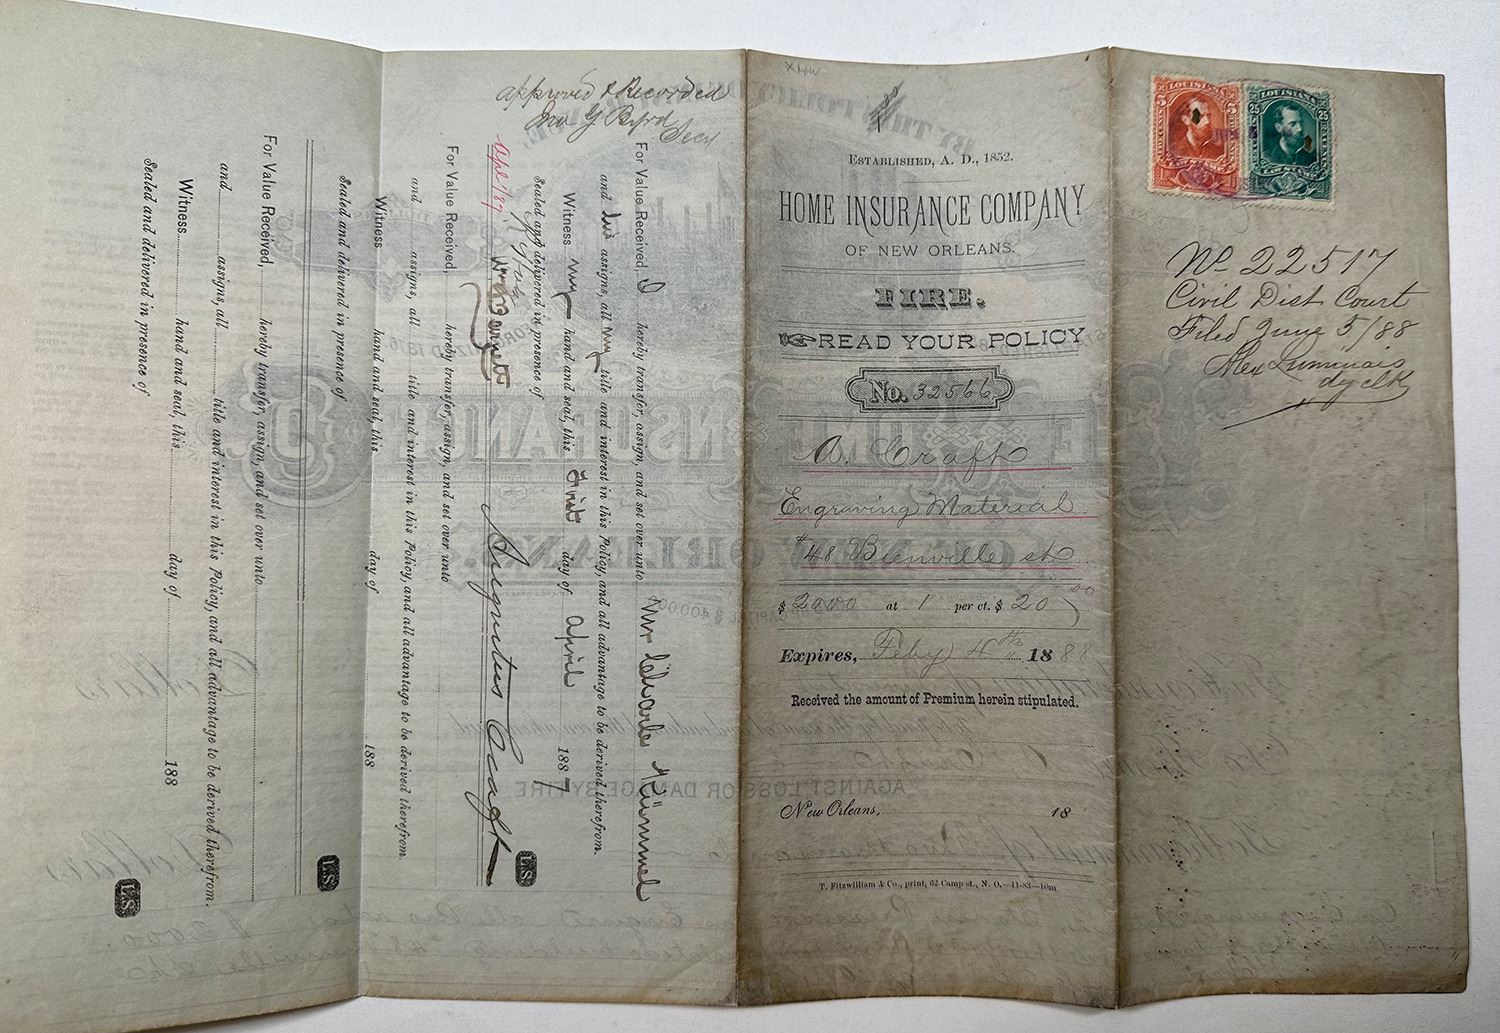 Approved & Recorded
Jno G Byrd
Secy
For Value Received, I hereby transfer, assign, and set over unto Mr Charles Kümmel
and his assigns, all my title and interest in this Policy, and all advantage to be derived therefrom.
Witness my hand and seal, this First day of April 1887
Sealed and delivered in presence of
Augustus Craft
L S
Apl 1/87
For Value Received, hereby transfer, assign, and set over unto
and assigns, all title and interest in this Policy, and all advantage to be derived therefrom.
Witness hand and seal, this day of 188
Sealed and delivered in presence of
L S
For Value Received, hereby transfer, assign, and set over unto
and assigns, all title and interest in this Policy, and all advantage to be derived therefrom.
Witness hand and seal, this day of 188
Sealed and delivered in presence of
L S
ESTABLISHED, A. D., 1852.
HOME INSURANCE COMPANY
OF NEW ORLEANS.
FIRE.
READ YOUR POLICY
No. 32566
A. Craft
Engraving Material
#48 Bienville st
$ 2000 at 1 per ct. $ 20 00
Expires, Feby 4th 1888
Received the amount of Premium herein stipulated.
New Orleans, 18
T. Fitzwilliam & Co., print, 62 Camp st., N. O.—11-83—10m
LOUISIANA
5 5
LOUISIANA
25 25
LAW STAMP
No 22517
Civil Dist Court
Filed June 5/88
Alex Luminais
dy clk